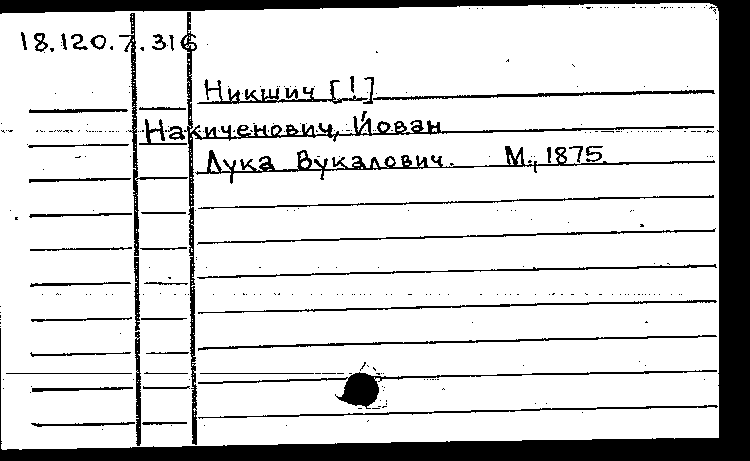 18.120.7.316
Никшич [!]
Накиченович, Йован
Лука Вукалович. М., 1875.